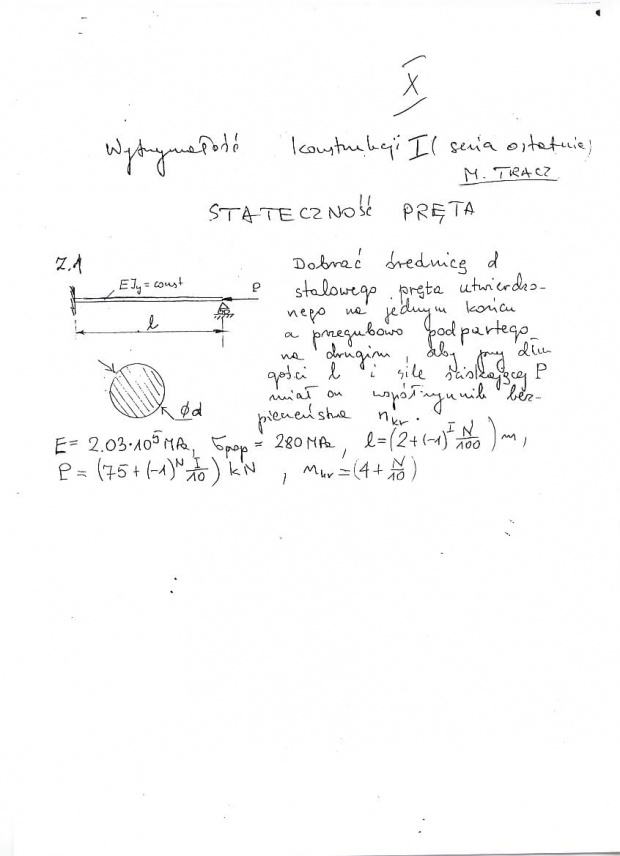 X
Wytrzymałość Konstrukcji I (seria ostatnia)
M. TRACZ
STATECZNOŚĆ PRĘTA
Z.1
EJy = const
P
l
ød
Dobrać średnicę d
stalowego pręta utwierdzo-
nego na jednym końcu
a przegubowo podpartego
na drugim, aby przy dłu-
gości l i sile ściskającej P
miał on współczynnik bez-
pieczeństwa nkr.
E = 2.03·10⁵ MPa, σprop = 280 MPa, l = (2 + (-1)^I N/100) m,
P = (75 + (-1)^N I/10) kN, nkr = (4 + N/10)